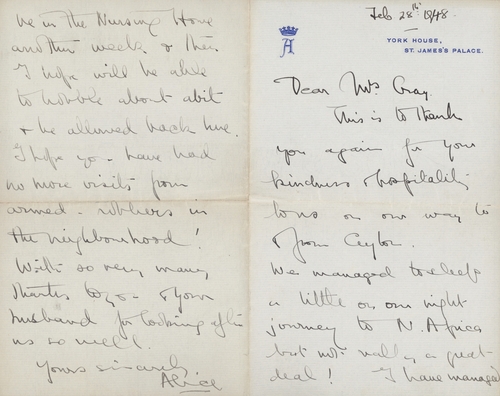 Feb 28th 1948.
A
YORK HOUSE,
ST. JAMES'S PALACE.
Dear Mrs Gray.
This is to thank
you again for your
kindness & hospitality
to us on our way to
& from Ceylon.
We managed to sleep
a little on our night
journey to N. Africa
but not really a great
deal! I have managed
be in the Nursing Home
another week & then
I hope will be able
to hobble about abit
& be allowed back here.
I hope you have had
no more visits from
armed robbers in
the neighbourhood!
With so very many
thanks to you & your
husband for looking after
us so well.
Yours sincerely
Alice